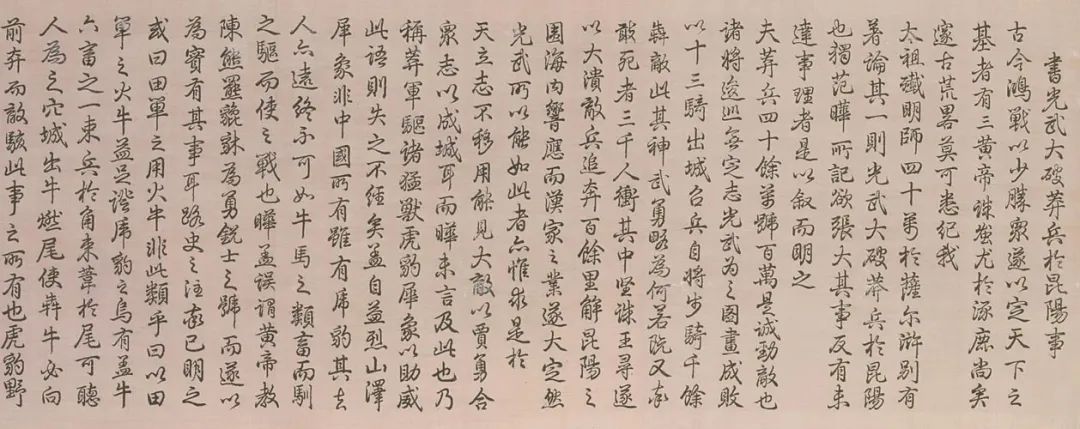 書光武大破莽兵於昆陽事
古今鴻戰以少勝衆遂以定天下之
基者有三黃帝誅蚩尤於涿鹿尚矣
邃古荒畧莫可悉紀我
太祖殲明師四十萬於薩尔滸別有
著論其一則光武大破莽兵於昆陽
也獨范曄所記欲張大其事反有未
達事理者是以叙而明之
夫莽兵四十餘萬號百萬是誠勁敵也
諸將逡巡無定志光武為之圖畫成敗
以十三騎出城召兵自將步騎千餘
犇敵此其神武勇略為何若既又率
敢死者三千人衝其中堅誅王尋遂
以大潰敵兵追奔百餘里解昆陽之
圍海內響應而漢家之業遂大定然
光武所以能如此者亦惟求是於
天立志不移用能見大敵以賈勇合
衆志以成城耳而曄未言及此也乃
稱莽軍驅諸猛獸虎豹犀象以助威
此語則失之不經矣益自益烈山澤
犀象非中國所有雖有虎豹其去
人亦遠終不可如牛馬之類畜而馴
之驅而使之戰也曄盖誤謂黃帝教
陳熊羆貔貅為勇銳士之號而遂以
為實有其事耳路史之注亦已明之
或曰田單之用火牛非此類乎曰以田
單之火牛益足證虎豹之烏有盖牛
六畜之一束兵於角束葦於尾可聽
人為之穴城出牛燃尾使犇牛必向
前奔而敵駭此事之所有也虎豹野